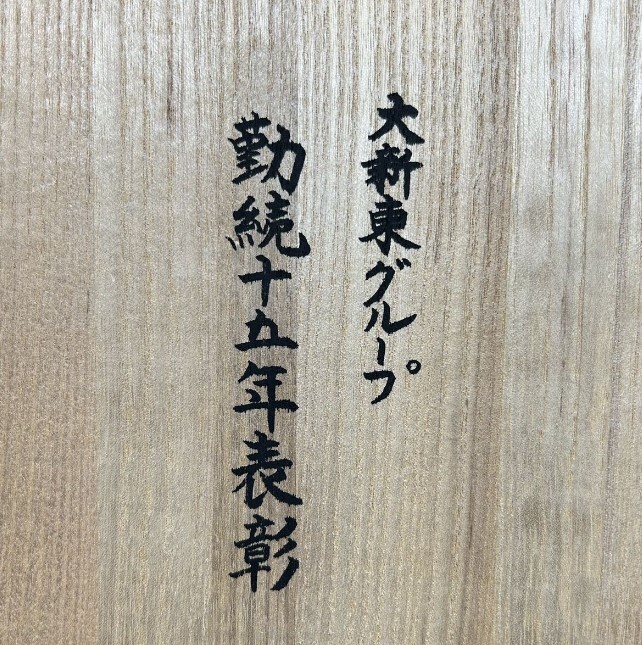 大新東グループ
勤続十五年表彰